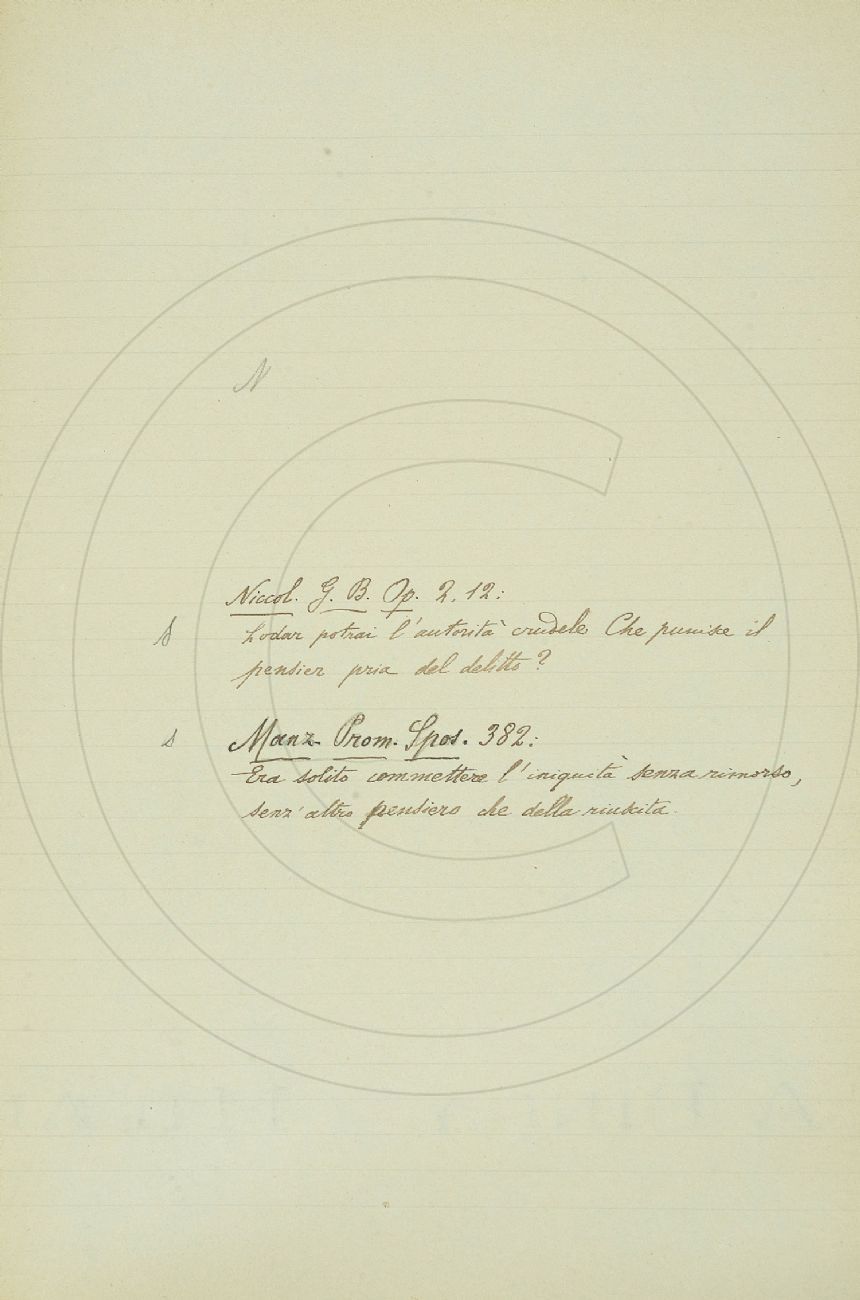 N
Niccol. G. B. Op. 2. 12:
S Lodar potrai l'autorità crudele Che punisce il
pensier pria del delitto?
S Manz. Prom. Spos. 382:
Era solito commettere l'iniquità senza rimorso,
senz'altro pensiero che della riuscita.